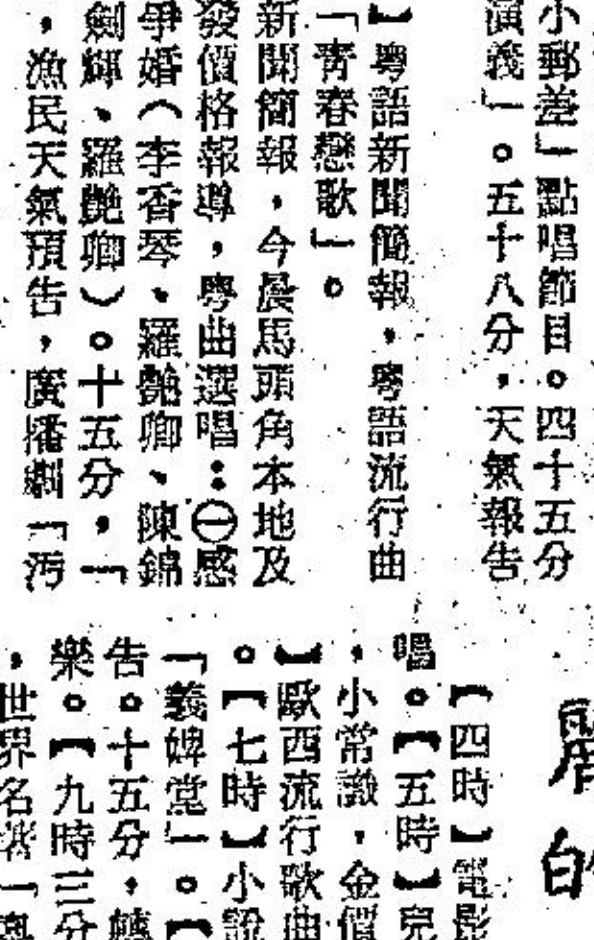 小郵差」點唱節目。四十五分
演義」。五十八分,天氣報告
】粵語新聞簡報,粵語流行曲
「青春戀歌」。
新聞簡報,今晨馬頭角本地及
發價格報導,粵曲選唱:㊀感
爭婚(李香琴、羅艷卿、陳錦
劍輝、羅艷卿)。十五分,「
,漁民天氣預告,廣播劇「污
【四時】電影
唱。【五時】兒
,小常識,金價
】歐西流行歌曲
。【七時】小說
「義婢堂」。【
告。十五分,
樂。【九時三分
,世界名著「